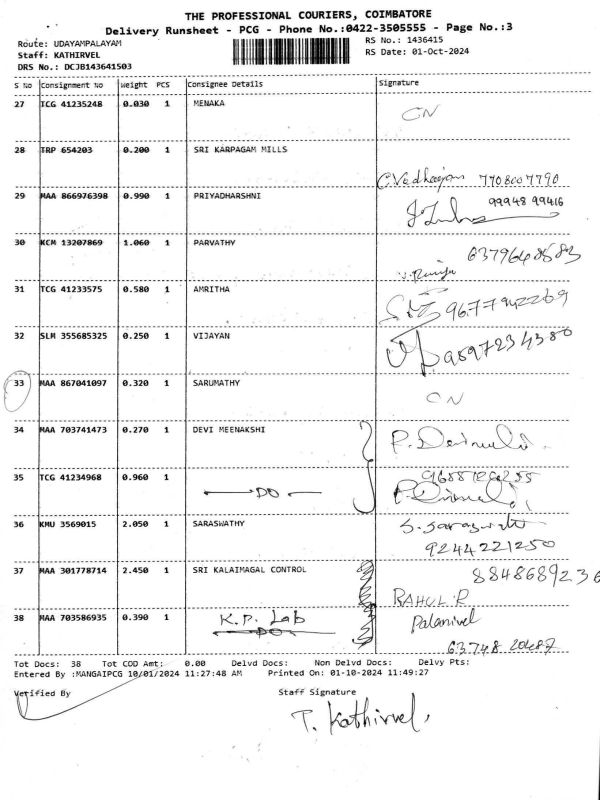 THE PROFESSIONAL COURIERS, COIMBATORE
Delivery Runsheet - PCG - Phone No.:0422-3505555 - Page No.:3
Route: UDAYAMPALAYAM RS No.: 1436415
Staff: KATHIRVEL RS Date: 01-Oct-2024
DRS No.: DCJB143641503
S No Consignment No Weight PCS Consignee Details Signature
27 TCG 41235248 0.030 1 MENAKA CN
28 TRP 654203 0.200 1 SRI KARPAGAM MILLS
7708007790
29 MAA 866976398 0.990 1 PRIYADHARSHNI 99948 99416
30 KCM 13207869 1.060 1 PARVATHY
31 TCG 41233575 0.580 1 AMRITHA
32 SLM 355685325 0.250 1 VIJAYAN 9597234380
33 MAA 867041097 0.320 1 SARUMATHY CN
34 MAA 703741473 0.270 1 DEVI MEENAKSHI
35 TCG 41234968 0.960 1 DO
36 KMU 3569015 2.050 1 SARASWATHY S. Saraswathi
9244221250
37 MAA 301778714 2.450 1 SRI KALAIMAGAL CONTROL 8848689236
RAHUL.R
38 MAA 703586935 0.390 1 K.P. Lab Palanivel
DO
63748 20487
Tot Docs: 38 Tot COD Amt: 0.00 Delvd Docs: Non Delvd Docs: Delvy Pts:
Entered By :MANGAIPCG 10/01/2024 11:27:48 AM Printed On: 01-10-2024 11:49:27
Verified By Staff Signature
T. Kathirvel.